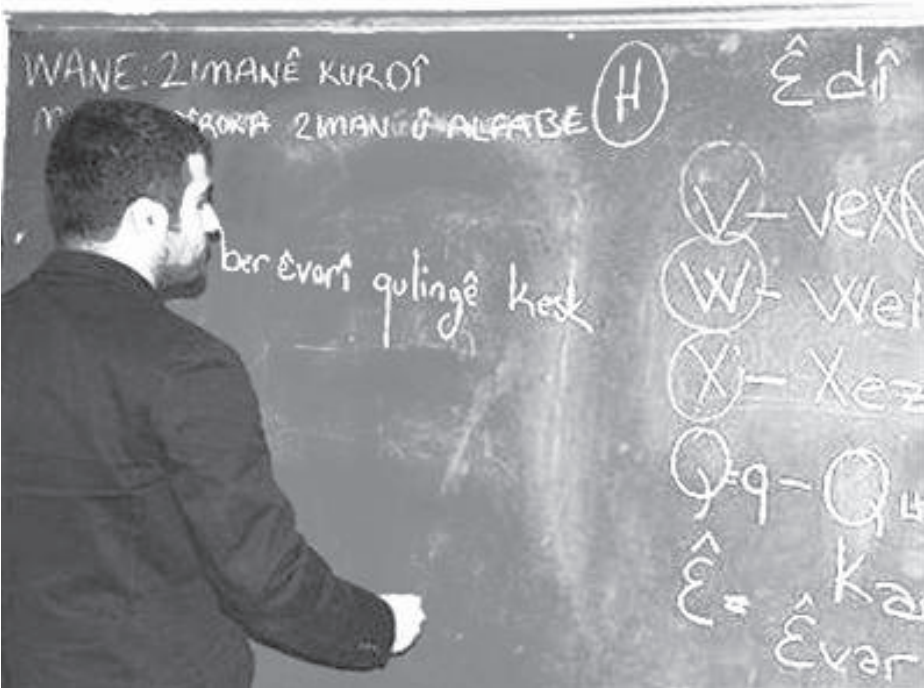 WANE: ZIMANÊ KURDÎ
ZIMAN Û ALFABE
H
ber êvarî qulingê kesk
Êdî
V - vex
W - Wel
X - Xez
Q = q - Qu
Ê = Ka
Êvar